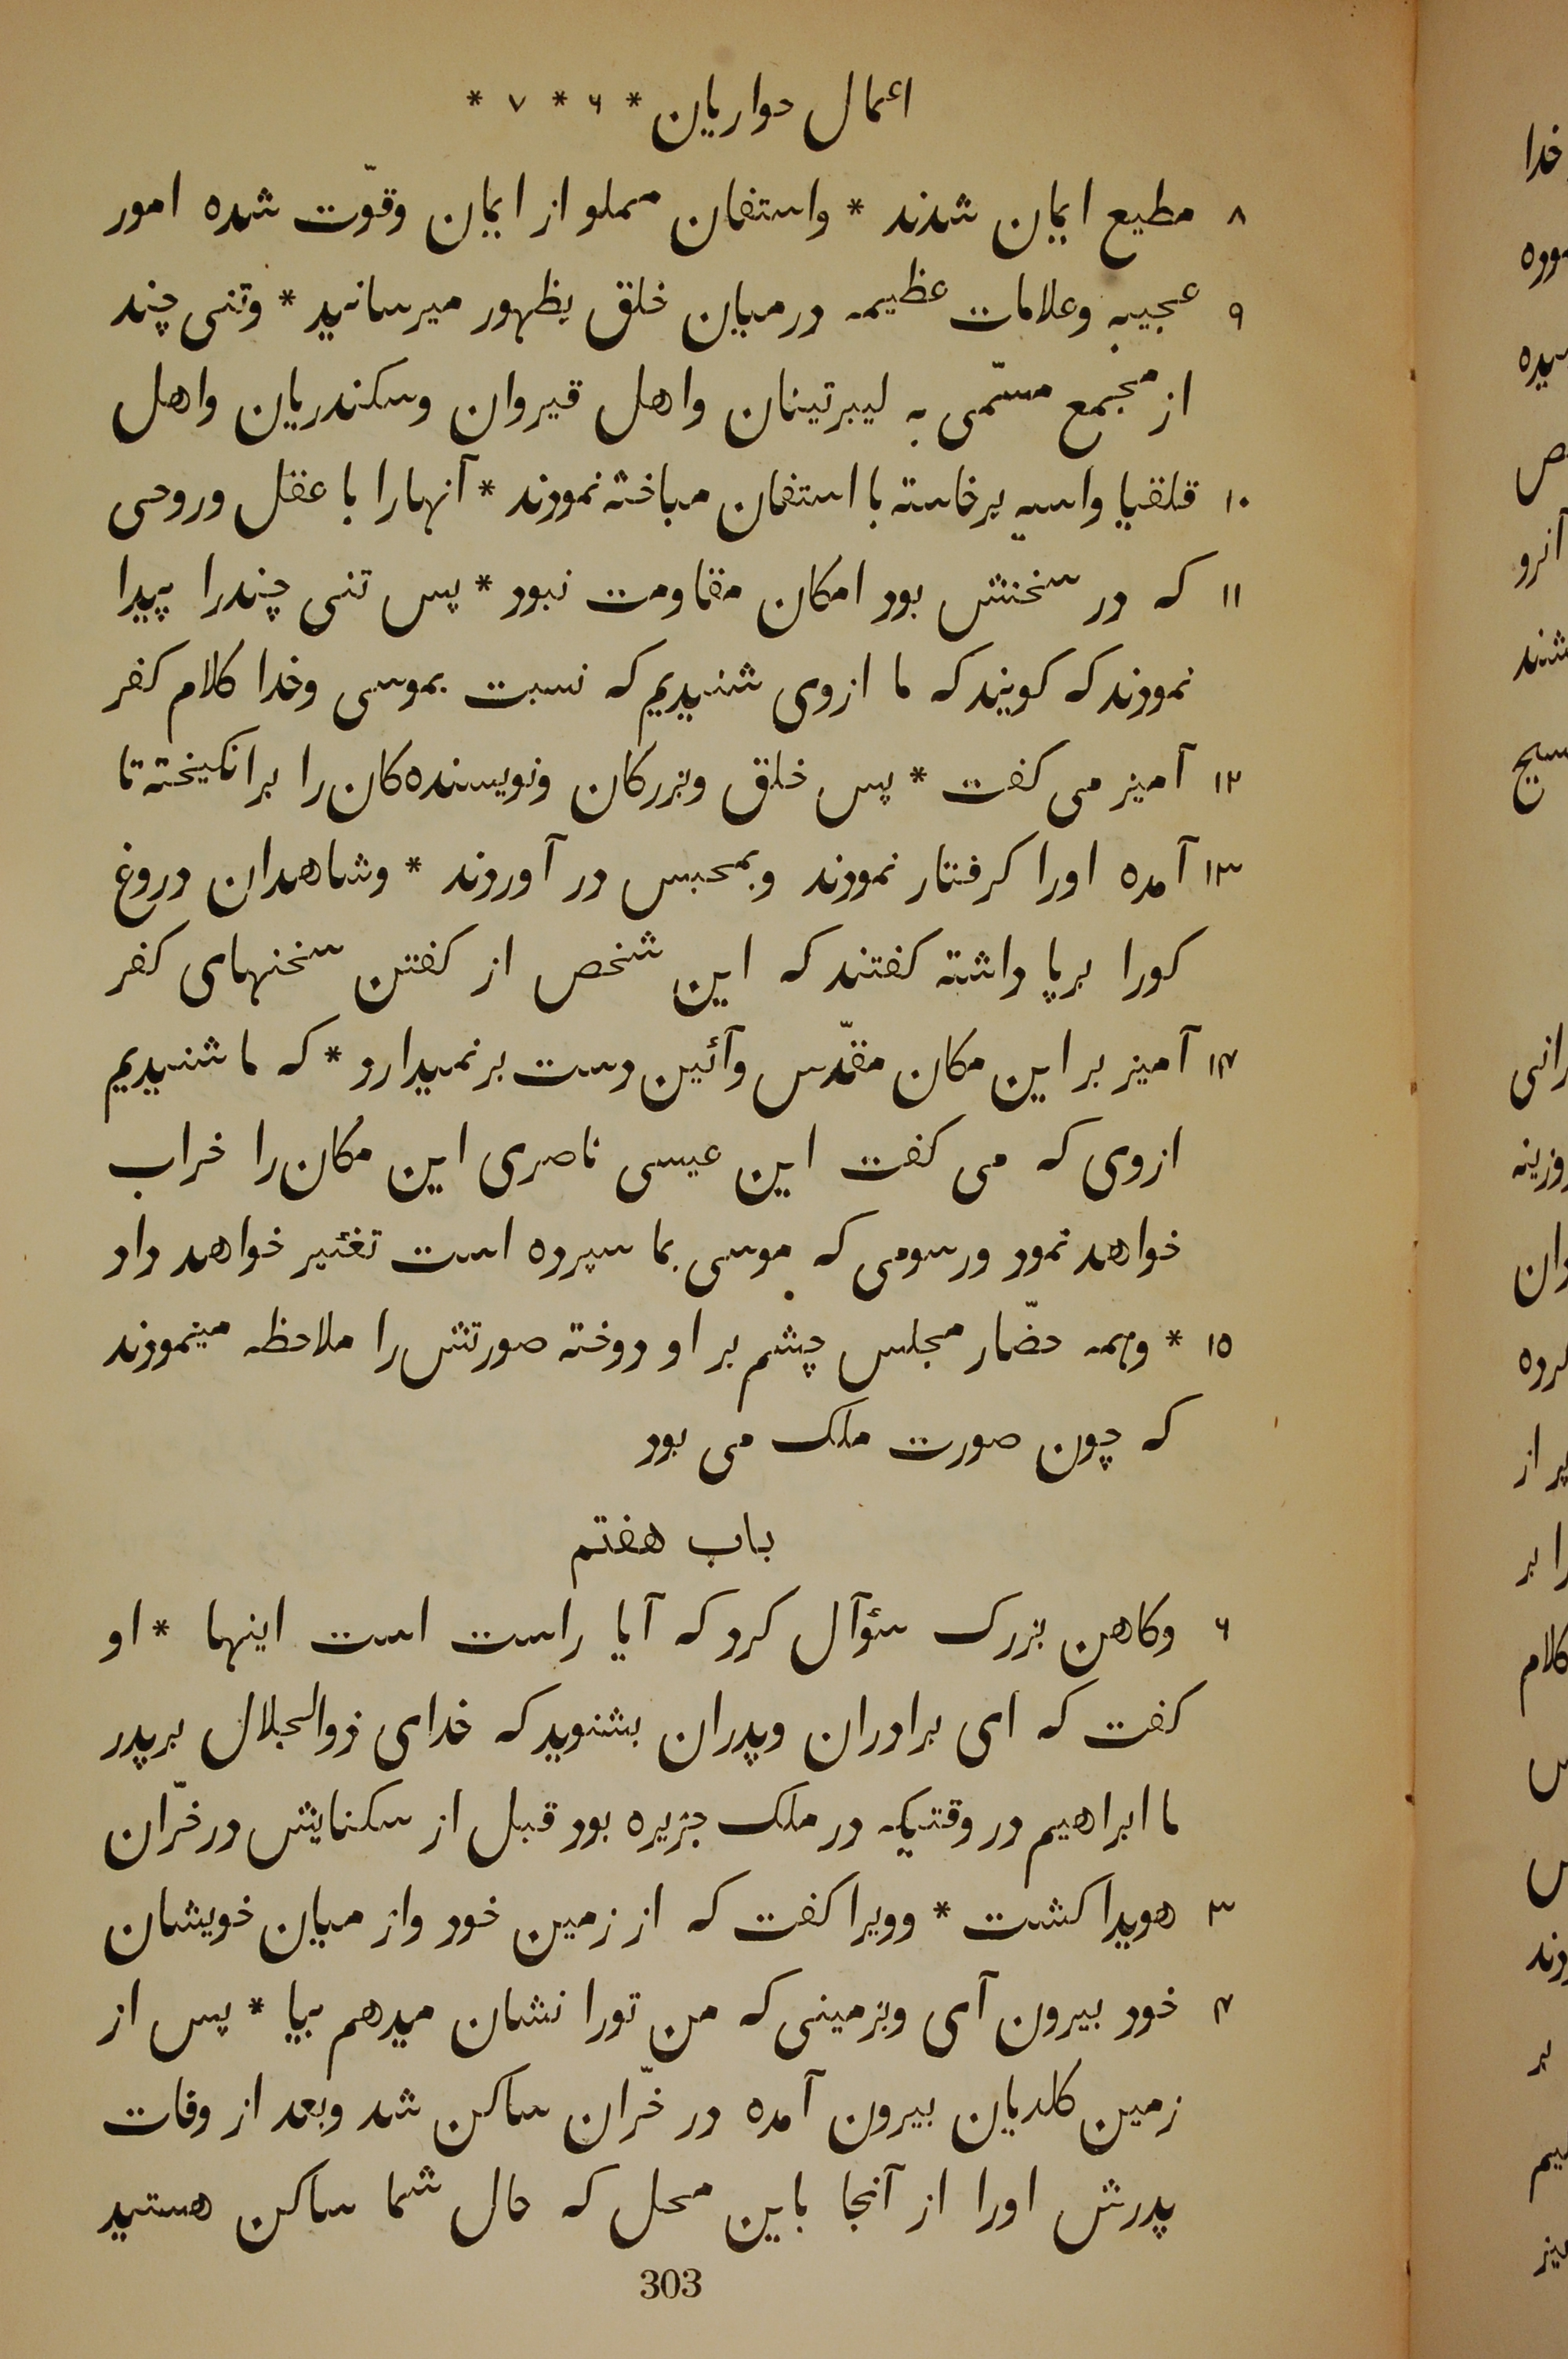 اعمال حواریان * ۶ * ۷ *
۸ مطیع ایمان شدند * واستفان مملو از ایمان وقوّت شده امور
۹ عجیبه وعلامات عظیمه در میان خلق بظهور میرسانید * وتنی چند
از مجمع مسمّی به لیبرتینان واهل قیروان وسکندریان واهل
۱۰ قلقیا واسیه برخاسته با استفان مباخثه نمودند * آنهارا با عقل وروحی
۱۱ که در سخنش بود امکان مقاومت نبود * پس تنی چندرا پیدا
نمودند که کویند که ما ازوی شنیدیم که نسبت بموسی وخدا کلام کفر
۱۲ آمیز می کفت * پس خلق وبزرکان ونویسنده کان را برانکیخته تا
۱۳ آمده اورا کرفتار نمودند وبمحبس در آوردند * وشاهدان دروغ
کورا برپا داشته کفتند که این شخص از کفتن سخنهای کفر
۱۴ آمیز بر این مکان مقدّس وآئین دست برنمیدارو * که ما شنیدیم
ازوی که می کفت این عیسی ناصری این مکان را خراب
خواهد نمود ورسومی که موسی بما سپرده است تغئیر خواهد داد
۱۵ * وهمه حضّار مجلس چشم بر او دوخته صورتش را ملاحظه مینمودند
که چون صورت ملک می بود
باب هفتم
۶ وکاهن بزرک سؤآل کرد که آیا راست است اینها * او
کفت که ای برادران وپدران بشنوید که خدای ذوالجلال برپدر
ما ابراهیم در وقتیکه در ملک جزیره بود قبل از سکنایش در خرّان
۳ هویدا کشت * وویرا کفت که از زمین خود واز میان خویشان
۴ خود بیرون آی وبزمینی که من تورا نشان میدهم بیا * پس از
زمین کلدیان بیرون آمده در خرّان ساکن شد وبعد از وفات
پدرش اورا از آنجا باین محل که حال شما ساکن هستید
303